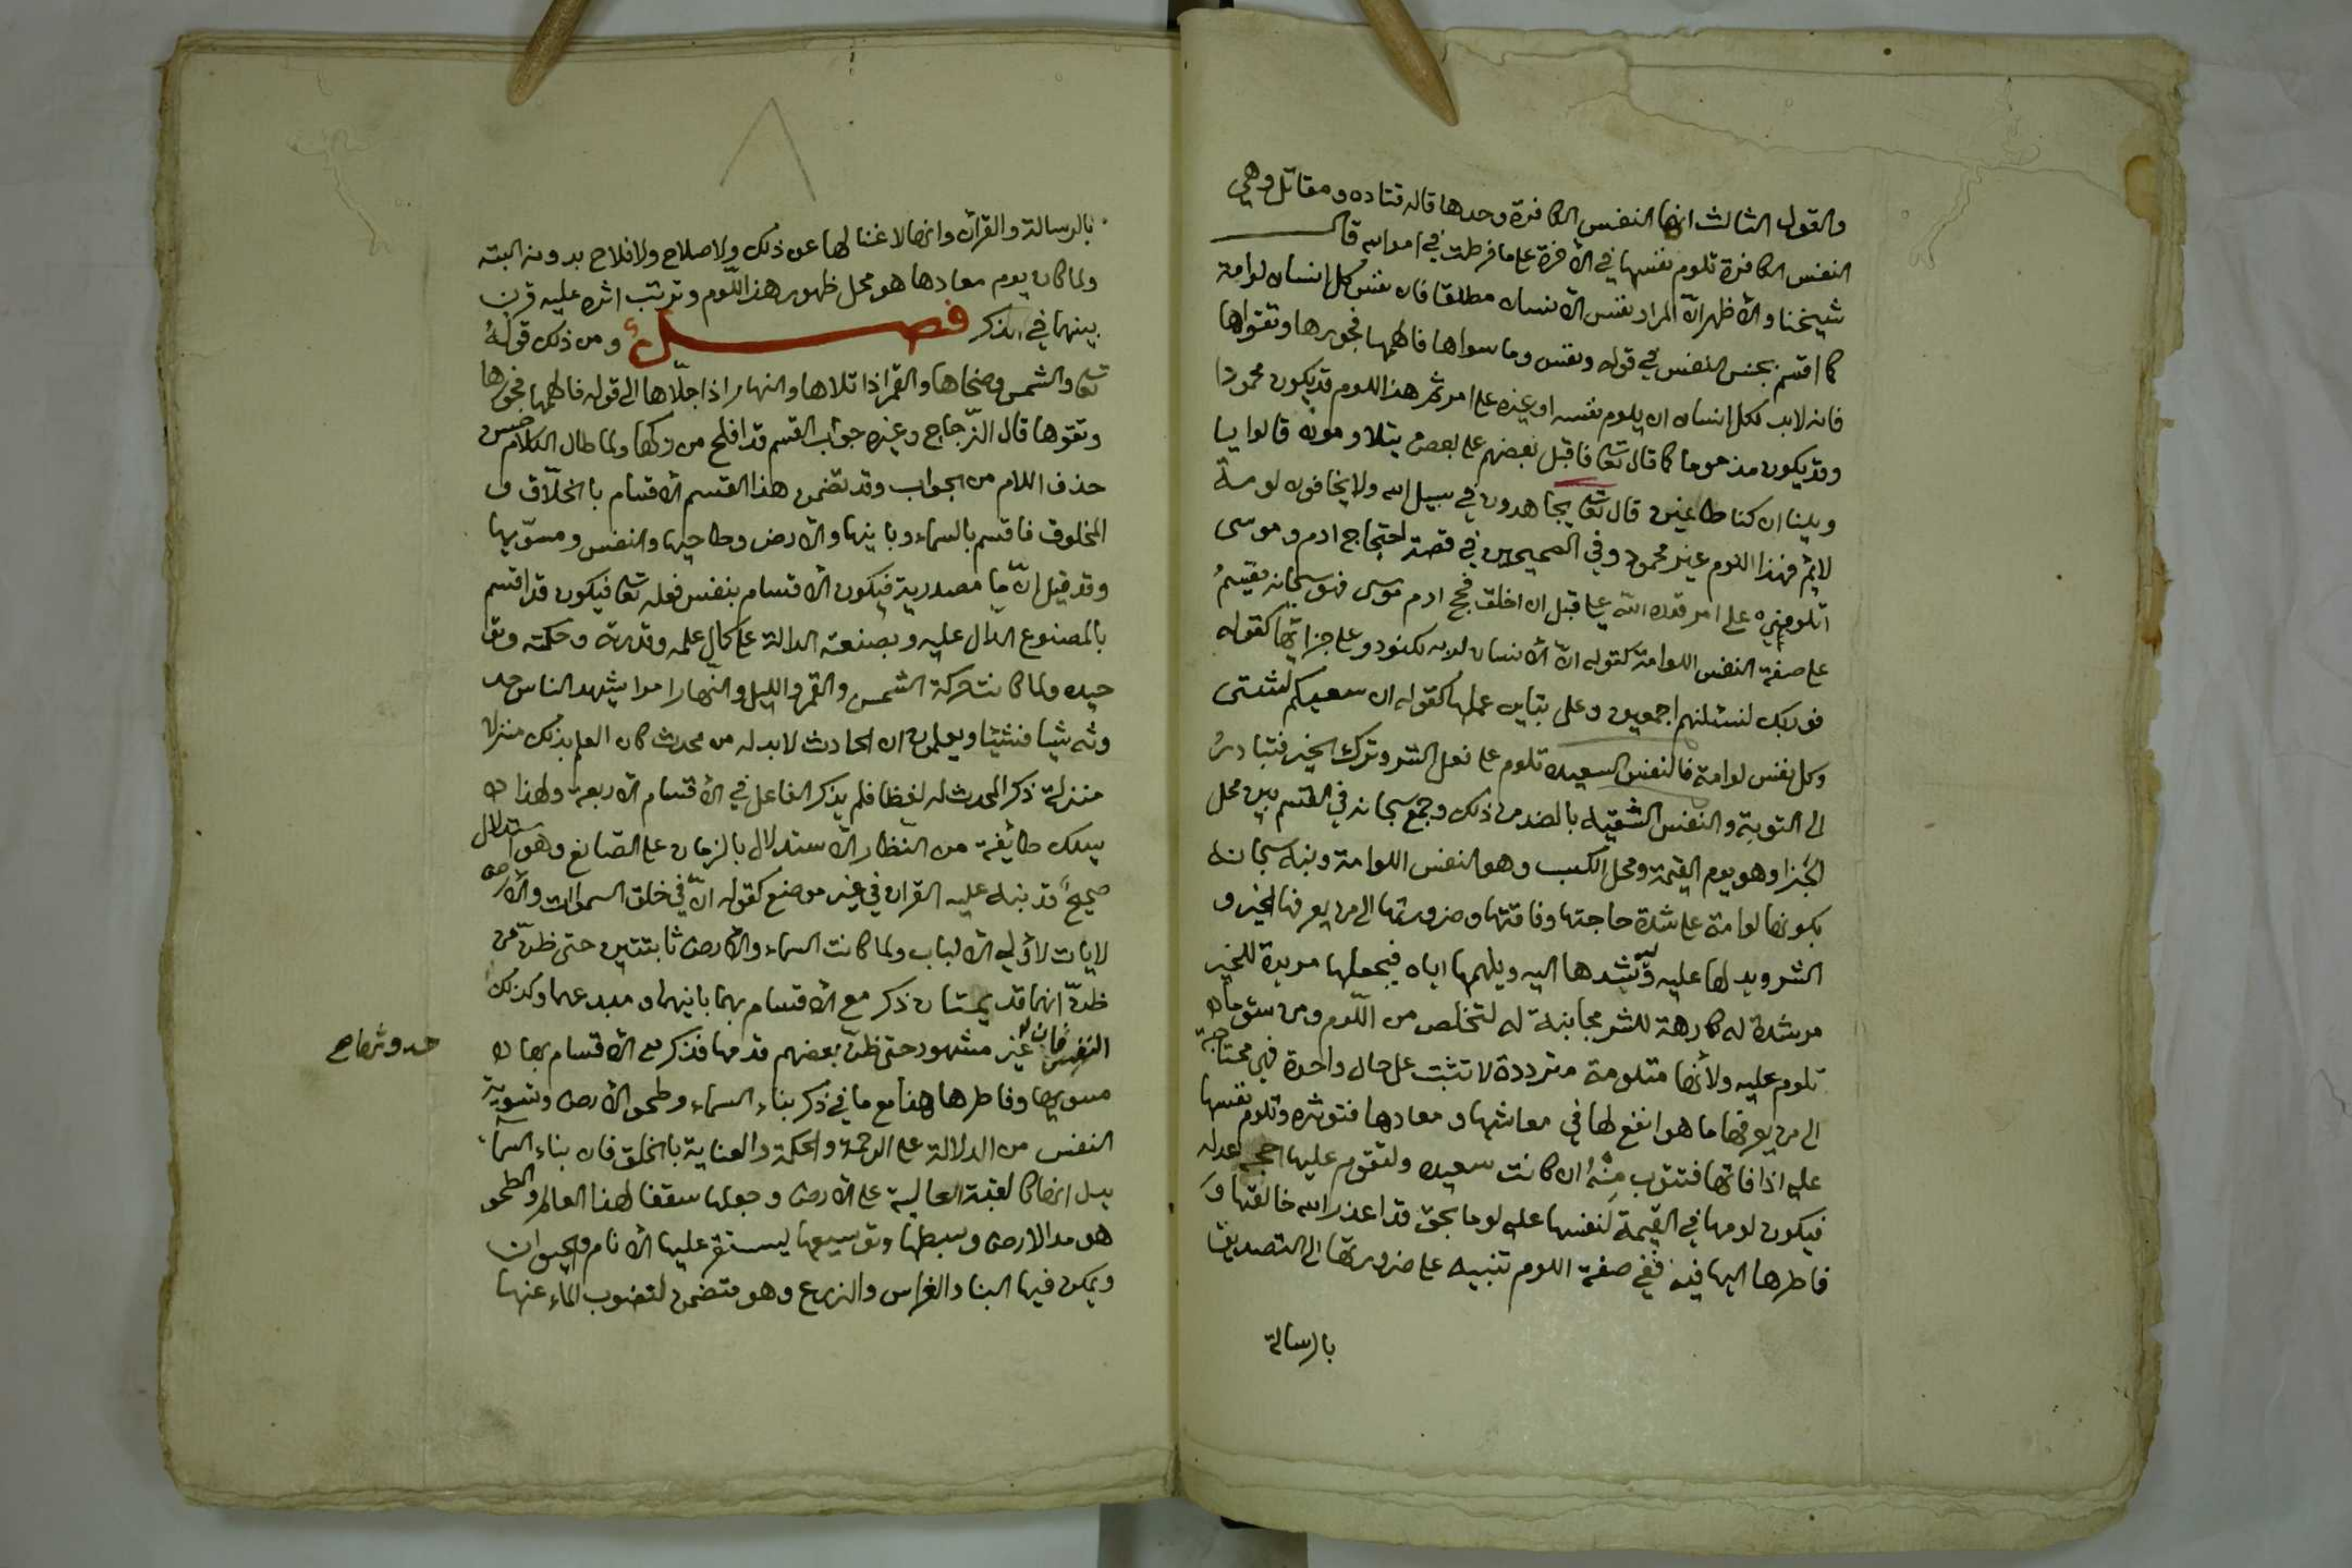 والقول الثالث انها النفس الكافرة وحدها قاله قتاده ومقاتل وهي
النفس الكافرة تلوم نفسها في الاخرة على ما فرطت في امر الله قال
شيخنا والأظهر انّ المراد نفس الانسان مطلقا فان نفس كل انسان لوامة
كما اقسم بجنس النفس في قوله ونفس وما سواها فالهمها فجورها وتقواها
فانه لابد لكل انسان ان يلوم نفسه او غيره على امر ثم هذا اللوم قد يكون محمودا
وقد يكون مذموما كما قال تعا فاقبل بعضهم على بعض يتلاومون قالوا يا
ويلنا ان كنا طاغين قال تعا يجاهدون في سبيل الله ولا يخافون لومة
لائم فهذا اللوم غير محمود وفي الصحيحين في قصة احتجاج ادم وموسى
اتلومني على امر قدره الله علي قبل ان اخلق فحج ادم موسى فهو سبحانه يقسم
على صفة النفس اللوامة كقوله انّ الانسان لربه لكنود وعلى جزائها كقوله
فوربك لنسئلنهم اجمعين وعلى تباين عملها كقوله ان سعيكم لشتى
وكل نفس لوامة فالنفس السعيده تلوم على فعل الشر وترك الخير فتبادر
الى التوبة والنفس الشقيه بالضد من ذلك وجمع سبحانه في القسم بين محل
الجزا وهو يوم القيمة ومحل الكسب وهو النفس اللوامة ونبه سبحانه
بكونها لوامة على شدة حاجتها وفاقتها وضرورتها الى من يعرفها الخير و
الشر ويدلها عليه ويرشدها اليه ويلهمها اياه فيجعلها مريدة للخير
مرشدة له كارهة للشر مجانبة له لتخلص من اللّوم ومن سوء ما
تلوم عليه ولأنها متلومة مترددة لا تثبت على حال واحدة فهي محتاجة
الى من يعرفها ما هو انفع لها في معاشها ومعادها فتوثره وتلوم نفسها
عليه اذا فاتها فتتوب منه ان كانت سعيده ولتقوم عليها حجة عدله
فيكون لومها في القيمة لنفسها عليه لوما بحق قد اعذر الله خالقها و
فاطرها اليها فيه ففي صفة اللوم تنبيه على ضرورتها الى التصديق
بالرسالة
بالرسالة والقرآن وانها لا غنا لها عن ذلك ولا صلاح ولا فلاح بدونه البته
ولما كان يوم معادها هو محل ظهور هذا اللّوم وترتب اثره عليه قرن
بينهما في الذكر فصل ومن ذلك قوله
تعا والشمس وضحاها والقمر اذا تلاها والنهار اذا جلّاها الى قوله فالهمها فجورها
وتقوها قال الزّجاج وغيره جواب القسم قد افلح من زكها ولما طال الكلام حسن
حذف اللام من الجواب وقد تضمن هذا القسم الاقسام بالخلّاق و
المخلوق فاقسم بالسماء وبانيها والارض وطاحيها والنفس ومسوّيها
وقد قيل انّ ما مصدرية فيكون الاقسام بنفس فعله تعا فيكون قد اقسم
بالمصنوع الدال عليه وبصنعته الدالة على كمال علمه وقدرته وحكمته وتو
حيده ولما كانت حركة الشمس والقمر والليل والنّهار امرا يشهد الناس حد
وثه شيا فشيئا ويعلمون ان الحادث لابد له من محدث كان العلم بذلك منزلا
منزلة ذكر المحدث له لفظا فلم يذكر الفاعل في الاقسام الاربعه ولهذا
يسلك طائفة من النظار الاستدلال بالزمان على الصّانع وهو استدلال
صحيح قد نبه عليه القران في غير موضع كقوله انّ في خلق السموات والأرض
لايات لأولي الالباب ولما كانت السماء والارض ثابتتين حتى ظنّ من
ظنّ انهما قديمتان ذكر مع الاقسام بهما بانيهما ومبدعهما وكذلك
النفس فان غير مشهود حتى ظنّ بعضهم قدمها فذكر مع الاقسام بها
حدوثها صح
مسويها وفاطرها هذا مع ما في ذكر بناء السماء وطحو الأرض وتسوية
النفس من الدلالة على الرحمة والحكمة والعناية بالخلق فان بناء السّماء
يدل انها كالقبة العالية على الارض وجعلها سقفا لهذا العالم والطحو
هو مد الارض وبسطها وتوسيعها ليستقر عليها الأنام والحيوان
ويمكن فيها البنا والغراس والزرع وهو متضمن لنضوب الماء عنها